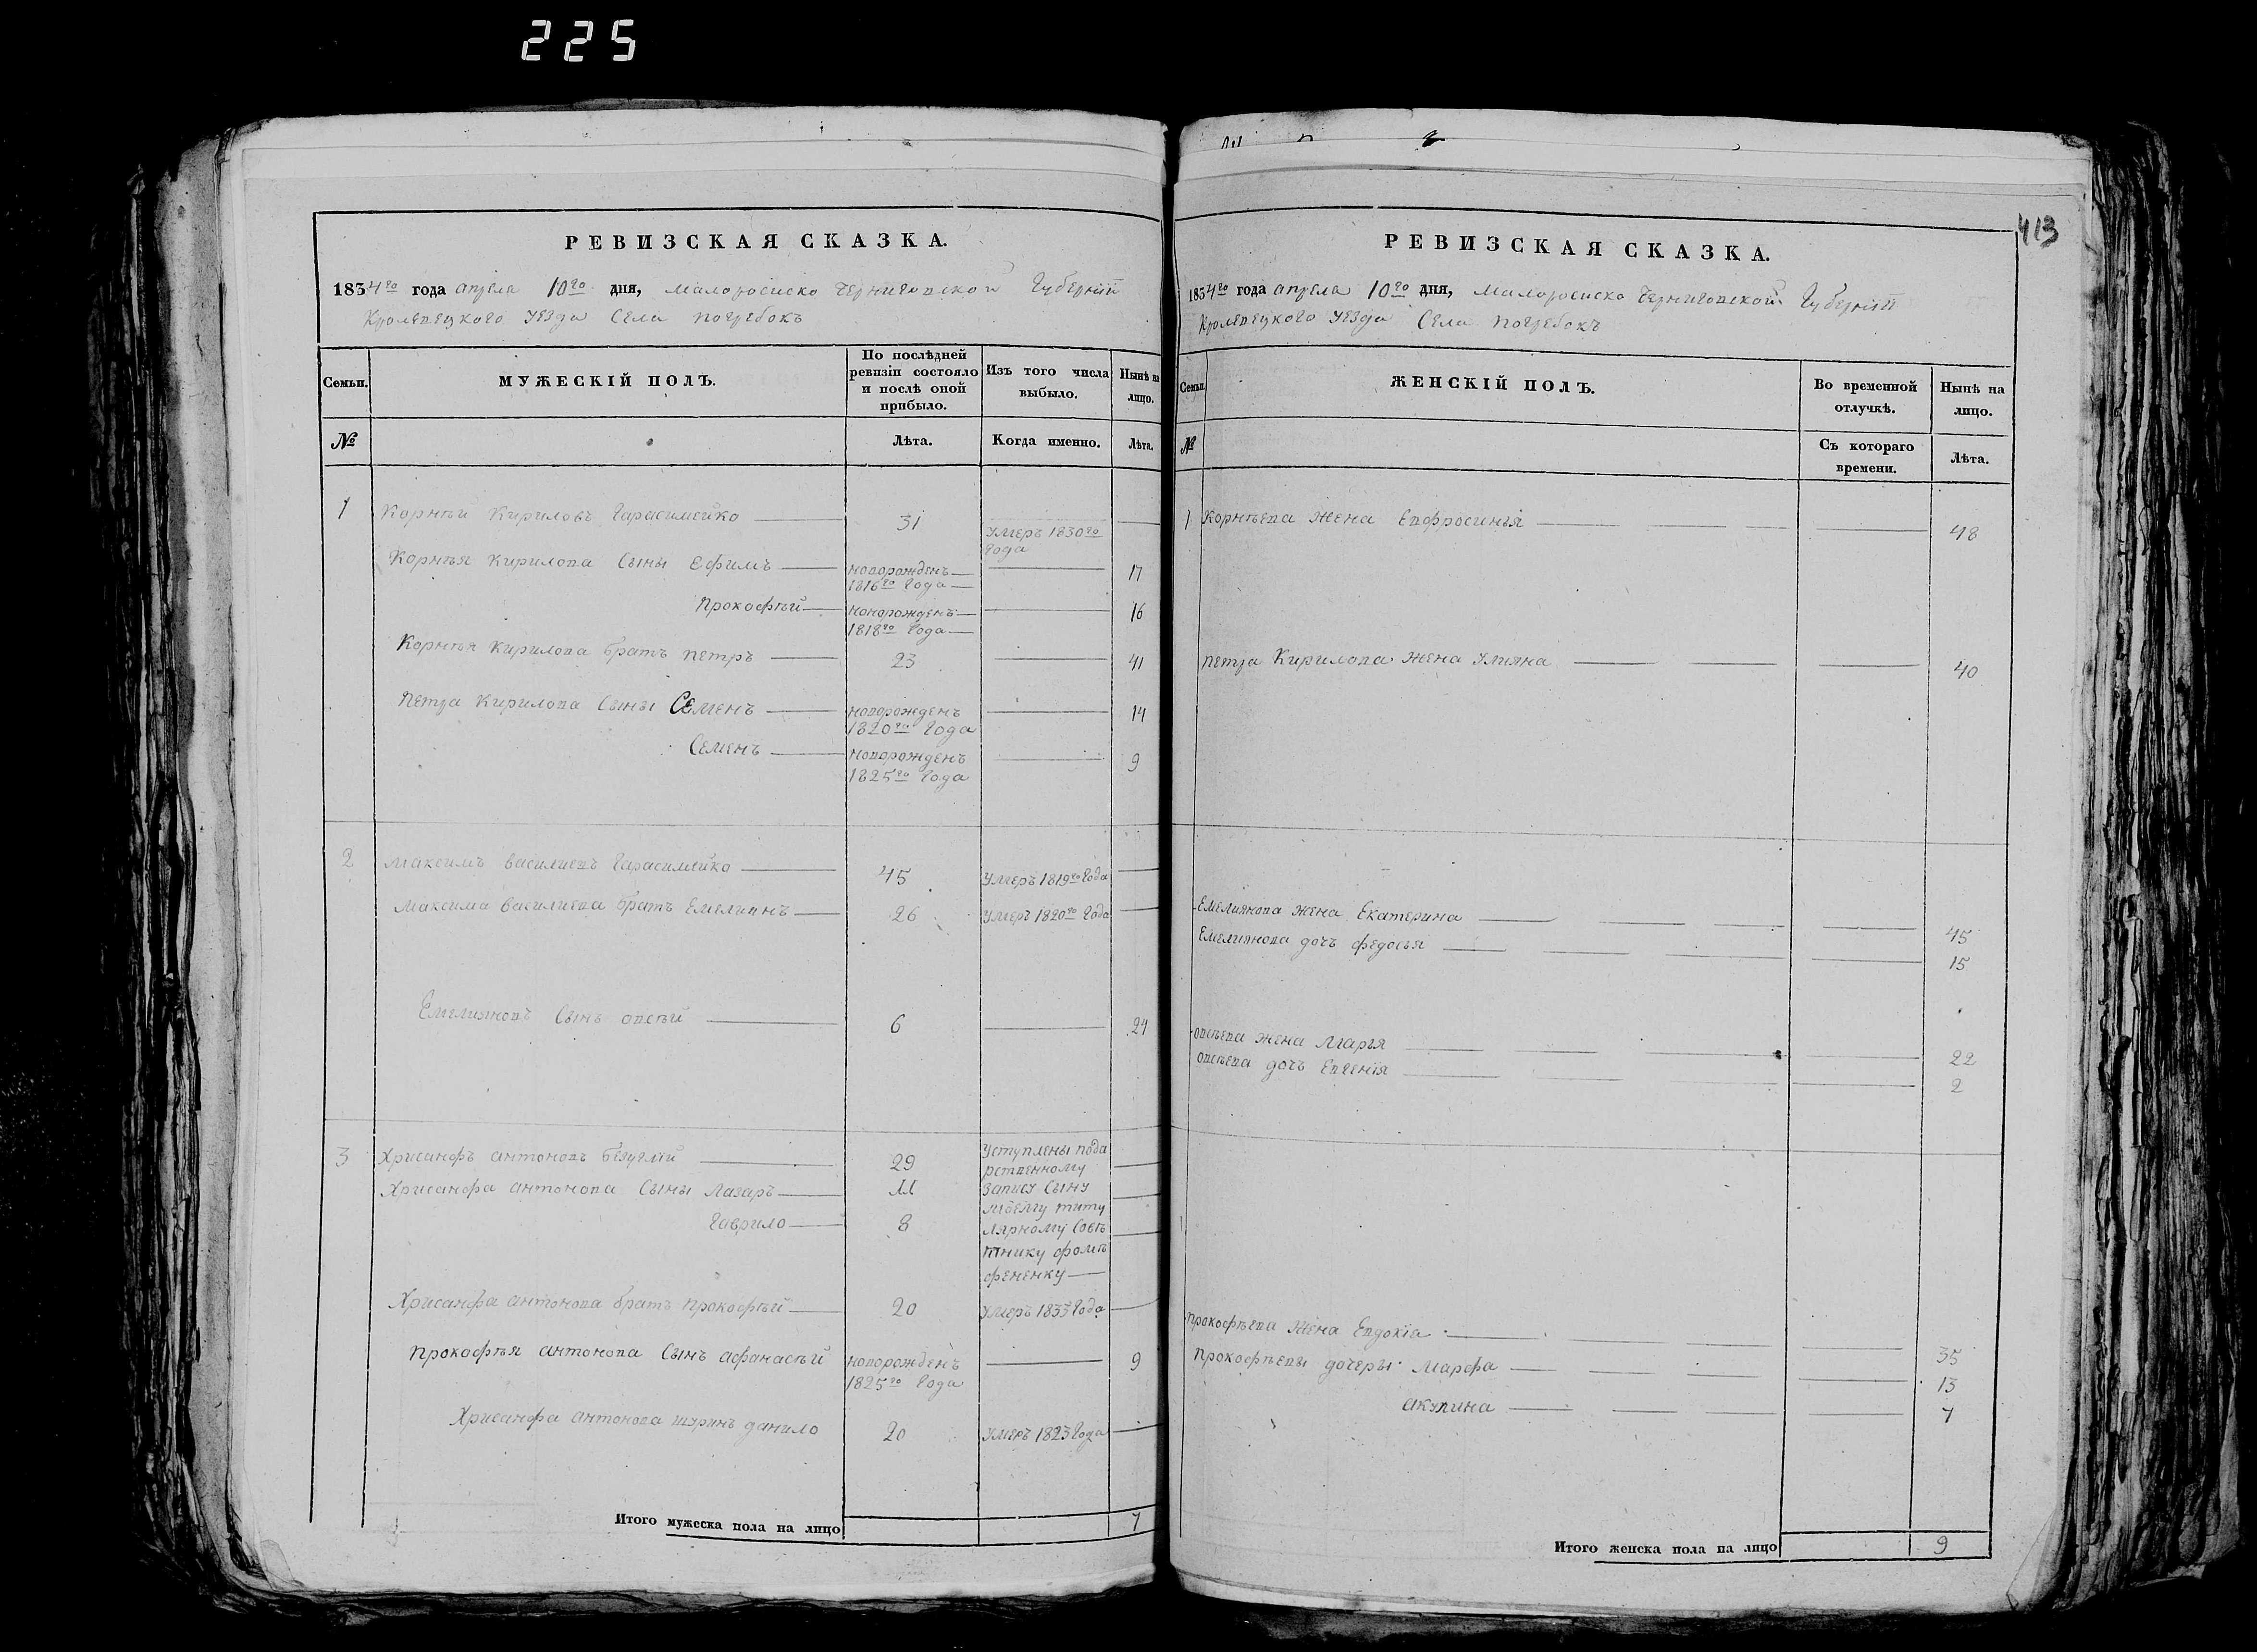 225
413
РЕВИЗСКАЯ СКАЗКА.
1834го года апреля 10го дня, малоросиско Черниговской Губернїи
Кролевецкого уезда Села погребокъ
Семьи. МУЖЕСКІЙ ПОЛЪ. По послѣдней ревизіи состояло и послѣ оной прибыло. Изъ того числа выбыло. Нынѣ на лицо.
№ Лѣта. Когда именно. Лѣта.
1 Корнѣи Кириловъ Гарасимейко 31 умеръ 1830го года
Корнѣя Кирилова Сыны Ефимъ новорожденъ 1816го Года 17
Прокофѣй новорожденъ 1818го Года 16
Корнѣя Кирилова братъ петръ 23 41
Петра Кирилова Сыны Семенъ новорожденъ 1820го Года 14
Семенъ новорожденъ 1825го Года 9
2 Максимъ василиевъ Гарасимейко 45 умеръ 1819го Года
Максима василиева братъ Емелиянъ 26 умеръ 1820го Года
Емелияновъ Сынъ овсѣй 6 24
3 Хрисанфъ антоновъ безуглїй 29 Уступлены пода
Хрисанфа антонова Сыны Лазаръ 11 рственному
запису Сыну
Гаврило 8 моему титу
лярному Совѣ
тнику фомѣ
фененку
Хрисанфа антонова братъ прокофѣй 20 умеръ 1833 Года
прокофѣя антонова Сынъ афанасѣй новорожденъ 1825го Года 9
Хрисанфа антонова шуринъ данило 20 умеръ 1823 Года
Итого мужеска пола на лицо 7
РЕВИЗСКАЯ СКАЗКА.
1834го года апреля 10го дня, малоросиско Черниговской Губернїи
Кролевецкого уезда Села погребокъ
Семьи. ЖЕНСКІЙ ПОЛЪ. Во временной отлучкѣ. Нынѣ на лицо.
№ Съ котораго времени. Лѣта.
1 Корнѣева жена Евфросинья 48
петра Кирилова жена Улияна 40
Емелиянова жена Екатерина 45
Емелиянова дочъ федосья 15
овсѣева жена Марья 22
овсѣева дочъ Евгенїя 2
прокофѣева жена Евдокїа 35
прокофѣевы дочеры Марфа 13
акулина 7
Итого женска пола на лицо 9